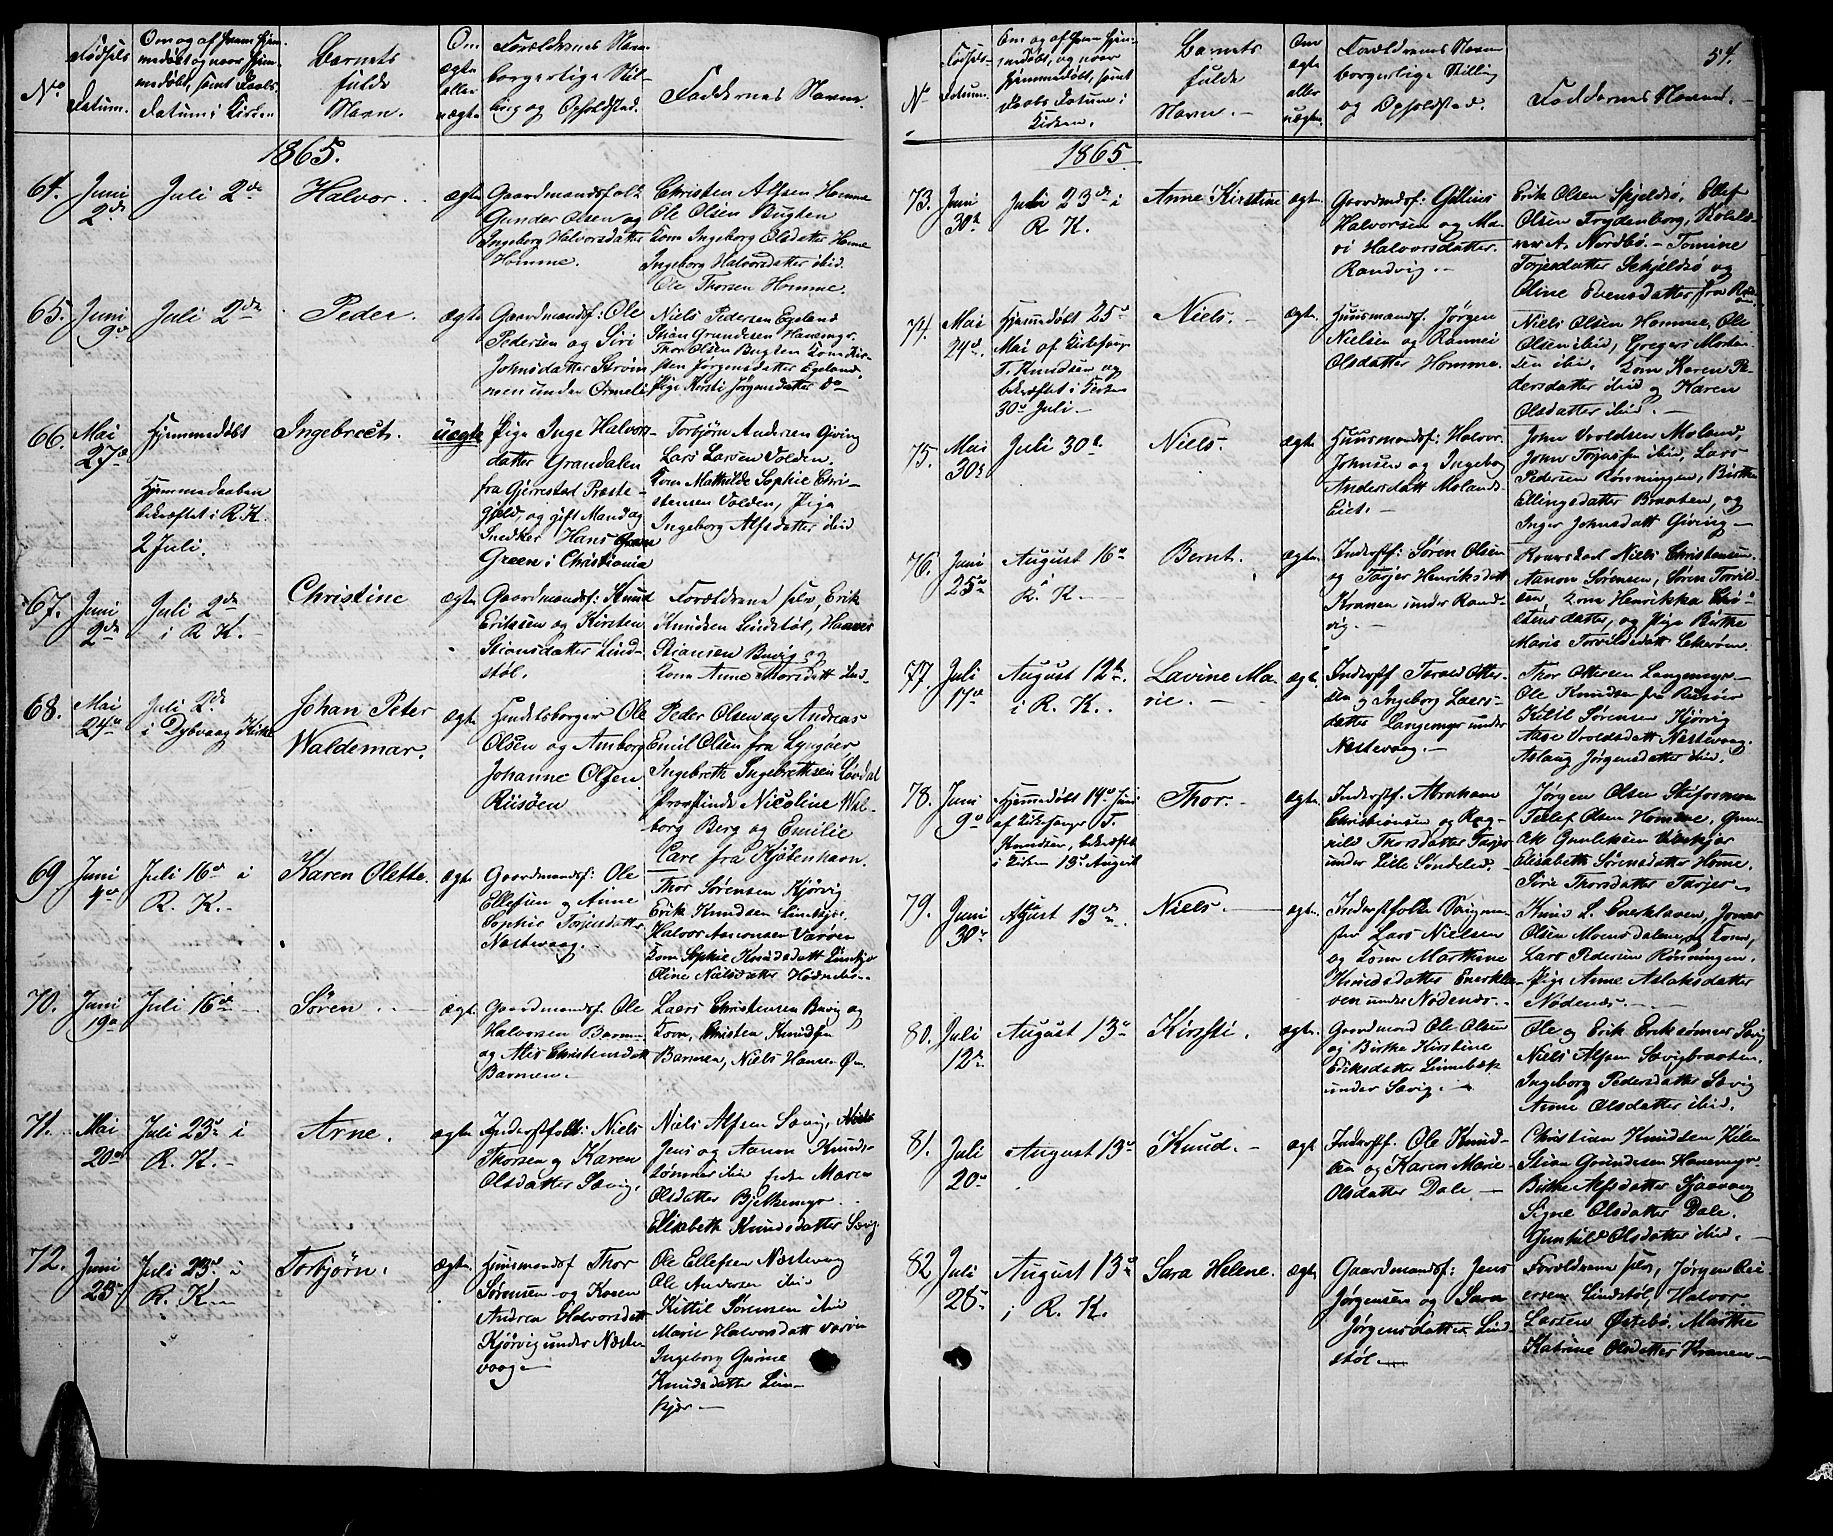 No
Fødsels
Datum.
Om og af hvem hjem-
medøbt og naar hjem-
medøbt, samt Daabs-
Datum i Kirken
Barnets
fulde
Navn.
Om
ægte
eller
uægte
Forældrenes Navn
borgerlige Stil-
ling og Opholdsted.
Faddernes Navne.
1865.
64. Juni 2de
Juli 2de
Halvor.
ægte
Gaardmandsfolk
Gunder Olsen og
Ingeborg Halvorsdatter
Homme.
Christen Alfsen Homme
Ole Olsen Bugten
Kone Ingeborg Olsdatter Homme
Ingeborg Halvorsdatter ibid.
Ole Thorsen Homme.
65. Juni 9de
Juli 2de
Peder.
ægte
Gaardmandsf: Ole
Pedersen og Siri
Johnsdatter Strøm-
men under
Niels Pedersen Egeland
Stian Grundesen Hanemyr
Thor Olsen Bugten Kone Kir-
sten Jørgensdatter Egeland,
Pige Kersti Jørgensdatter do
66. Mai 27de
Hjemmedøbt
Hjemmedaaben
bekræftet i R. K.
2 Juli.
Ingebreth.
uægte
Pige Inge Halvors-
datter Grandalen
fra Gjerrestad Præste-
gjeld, og gift Mand og
Snedker Hans
Green i Christiania
Torbjørn Andersen Giving
Lars Larsen Volden.
Kone Mathilde Sophie Chri-
stensen Volden, Pige
Ingeborg Alfsdatter ibid
67. Juni 2de
Juli 2de
i R. K.
Christine
ægte
Gaardmandsf: Knud
Eriksen og Kirsten
Stiansdatter Lind-
støl.
Forældrene selv, Erik
Knudsen Lindstøl, Hans
Stiansen Buvig og
Kone Anne
68. Mai 24de
Juli 2de
i Dybvaag Kirke
Johan Peter
Waldemar.
ægte
Handelsborger Ole
Olsen og Amborg
Johanne Olsen
Riisøen
Peder Olsen og Andreas
Emil Olsen fra Lyngøer
Ingebreth Ingebrethsen Løvdal
Nicoline Wil-
borg Berg og Emilie
Care fra Kjøbenhavn.
69 Juni 4de
Juli 16de i
R. K.
Karen Olette.
ægte
Gaardmandsf: Ole
Ellefsen og Anne
Sophie Torjusdatter
Næstevaag.
Thor Sørensen Kjørvig
Erik Knudsen
Halvor Aanonsen Varøen
Kone Sophie Knudsdatt
Oline Nielsdatter
70. Juni 19de
Juli 16de
Søren.
ægte
Gaardmandsf. Ole
Halvorsen Barmen
og Alis Christensdatt
Barmen.
Laers Christensen Buvig og
Kone, Christen Knudsen
Barmen, Niels Hansen
71. Mai 20de
Juli 23de i
R. K.
Arne.
ægte
Inderstfolk: Niels
Thorsen og Karen
Olsdatter Søvig.
Niels Alfsen Søvig,
Jens og Aanon Knuds-
sønner ibid Maren
Olsdatter Bjelkemyr
Elisabeth Knudsdatter Søvig
72. Juni 25de
Juli 23de i
R. K.
Torbjørn.
ægte
Huusmandsf Thor
Sørensen og Karen
Andrea Halvorsdatt
Kjørvig under Næste-
vaag.
Ole Ellefsen Næstevaag
Ole Andersen ibid
Kittil Sørensen ibid
Marie Halvorsdatt Varøen
Ingeborg Gurine
Knudsdatter Lin-
kjær.
54.
No
Fødsels-
Datum.
Om og af hvem hjem-
medøbt, og naar
hjemmedøbt, samt
Daabs Datum i
Kirken.
Barnets
fulde
Navn.
Om
ægte
eller
uægte.
Forældrenes Navn
borgerlige Stilling
og Opholdsted.
Faddernes Navne.
1865
73. Juni 30te
Juli 23de i
R. K.
Anne Kirstine
ægte.
Gaardmandsf: Gillius
Halvorsen og Ma-
ri Halvorsdatter.
Randvig.
Erik Olsen Skjeldsø, Ellef
Olsen Frydenborg,
A. Nordbø. Tomine
Torjesdatter Schjeldsø og
Oline Evensdatter fra
74. Mai 24de
Hjemmedøbt 25de
Mai af Kirkesanger
T. Knudsen og
bekræftet i Kirken
30te Juli
Niels.
ægte.
Huusmandsf: Jørgen
Nielsen og Rannei
Olsdatter Homme.
Niels Olsen Homme, Ole
Olsen ibid, Gregers Morten-
sen ibid. Kone Karen Pe-
dersdatter ibid og Karen
Olsdatter ibid.
75. Mai 30te
Juli 30te
Niels.
ægte
Huusmandsf: Halvor
Johnsen og Ingeborg
Andersdatt Molands
Eiet.
John Vroldsen Moland,
John ibid, Lars
Pedersen Rønningen, Birthe
Ellingsdatter Braaten, og
Inger Johnsdatt Giving
76. Juni 25de
August 16de
i
R. K.
Bernt.
ægte
Inderstf: Søren Olsen
og Torjer Henriksdatt
Kranen under Rand-
vig.
Niels Christensen
Aanon Sørensen, Søren Torild-
sen Kone Henrikka Chri-
stensdatter, og Pige Birthe
Marie Torildsdatt
77. Juli 17de
August 12te
i R. K.
Lavine Ma-
rie.
ægte.
Inderstf Torald Otter-
sen og Ingeborg Laers-
datter Langemyr under
Næstevaag.
Thor Ottersen Langemyr
Ole Knudsen fra Riisøer
Kitil Sørensen Kjørvig
Aase Vroldsdatt Næstevaag,
Aslaug Jørgensdatter ibid.
78. Juni 9de
Hjemmedøbt 14de Juni
af Kirkesanger T.
Knudsen, bekræftet
i Kirken 13de August
Thor.
ægte
Inderstf. Abraham
Christensen og Rag-
nild Thorsdatter
under Lille Søndeled.
Jørgen Olsen
Tellef Olsen Homme, Gun-
Elisabeth Sørensdatter Home.
Sirie Thorsdatter
79. Juni 30te
August 13de
Niels.
ægte.
Inderstfolk
Lars Nielsen
og Kone Marthine
Knudsdatter Enerkle-
ven under Nødenæs.
Knud L. Enerkleven, Jonas
Olsen og Kone,
Lars Pedersen Rønningen.
Pige Anne Aslaksdatter
Nødenæs.
80. Juli 12te
August 13de
Kirsti.
ægte.
Gaardmand Ole Olsen
og Birthe Kirstine
Eriksdatter Linnebæk
under Søvig.
Ole og Erik Erikssønner Søvig
Niels Alfsen Søvigbraaten.
Ingeborg Pedersdatter Søvig
Anne Olsdatter ibid.
81. Juli 20de
August 13de
Knud.
ægte
Inderstf. Ole Knud-
sen og Karen Marie
Olsdatter Dale
Christian Knudsen
Stian Grundesen Hanemyr
Birthe Alfsdatter
Signe Olsdatter Dale.
Gunhild Olsdatter ibid.
82 Juli 28de
August 13de
i R. K.
Sara Helene.
ægte.
Gaardmandsf: Jens
Jørgensen og Sara
Jørgensdatter Lind-
støl.
Forældrene selv, Jørgen Rei-
ersen Lindstøl, Halvor
Larsen Østebø, Marthe
Katrine Olsdatter Kranen